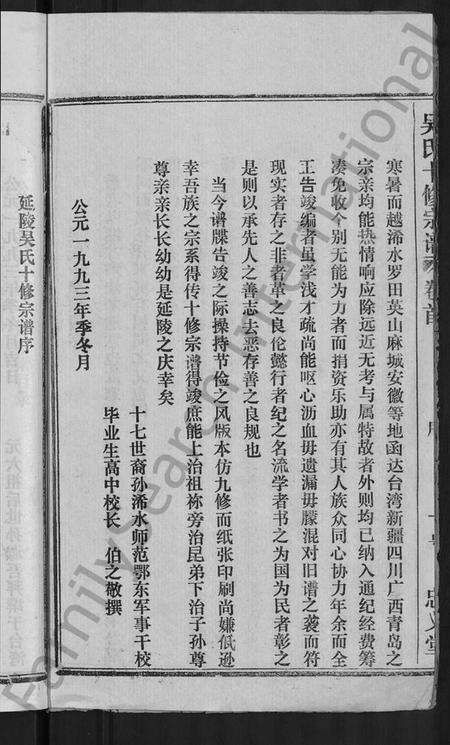 吴氏十修宗谱 卷首 忠义堂
寒暑而越浠水罗田英山麻城安徽等地函达台湾新疆四川广西青岛之
宗亲均能热情响应除远近无考与属特故者外则均已纳入通纪经费筹
凑免收个别无能为力者而捐资乐助亦有其人族众同心协力年余而全
工告竣编者虽学浅才疏尚能呕心沥血毋遗漏毋朦混对旧谱之袭而符
现实者存之非者革之良伦懿行者纪之名流学者书之为国为民者彰之
是则以承先人之善志去恶存善之良规也
当今谱牒告竣之际操持节俭之风版本仿九修而纸张印刷尚嫌低逊
幸吾族之宗系得传十修宗谱得竣庶能上治祖祢旁治昆弟下治子孙尊
尊亲亲长长幼幼是延陵之庆幸矣
十七世裔孙浠水师范鄂东军事干校
毕业生高中校长 伯之敬撰
公元一九九三年季冬月
延陵吴氏十修宗谱序
FamilySearch International